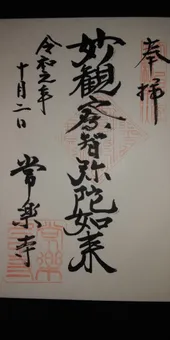 奉拝
妙観察智弥陀如来
令和元年
十月二日
常楽寺